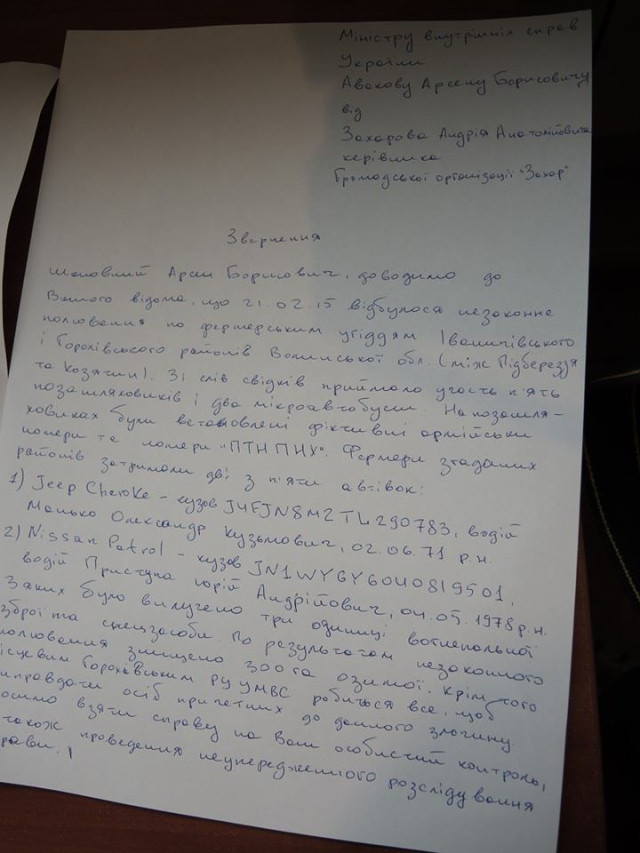 Міністру внутрішніх справ
України
Авакову Арсену Борисовичу
від
Захарова Андрія Анатолійовича
керівника
Громадської організації "Захар"
Звернення
Шановний Арсен Борисович, доводимо до
Вашого відома, що 21.02.15 відбулося незаконне
полювання по фермерським угіддям Іваничівського
і Горохівського районів Волинської обл. (між Підбереззя
та Козятин). Зі слів свідків приймало участь п'ять
позашляховиків і два мікроавтобуси. На позашля-
ховиках були встановлені фіктивні армійськи
номери та номери "ПТН ПНХ". Фермери згаданих
районів затримали дві з п'яти автівок:
1) Jeep Cheroke - кузов J4FJN8M2TL290783, водій
Манько Олександр Кузьмович, 02.06.71 р.н.
2) Nissan Patrol - кузов JN1WYGY60U0819501,
водій Приступа Юрій Андрійович, 04.05.1978 р.н.
З яких було вилучено три одиниці вогнепальної
зброї та спецзасоби. По результатам незаконного
полювання знищено 300 га озимої. Крім того
місцевим Горохівським РУ УМВС робиться все, щоб
виправдати осіб причетних до даного злочину.
осимо взяти справу на Ваш особистий контроль,
також проведення неупередженного розслідування
рави.